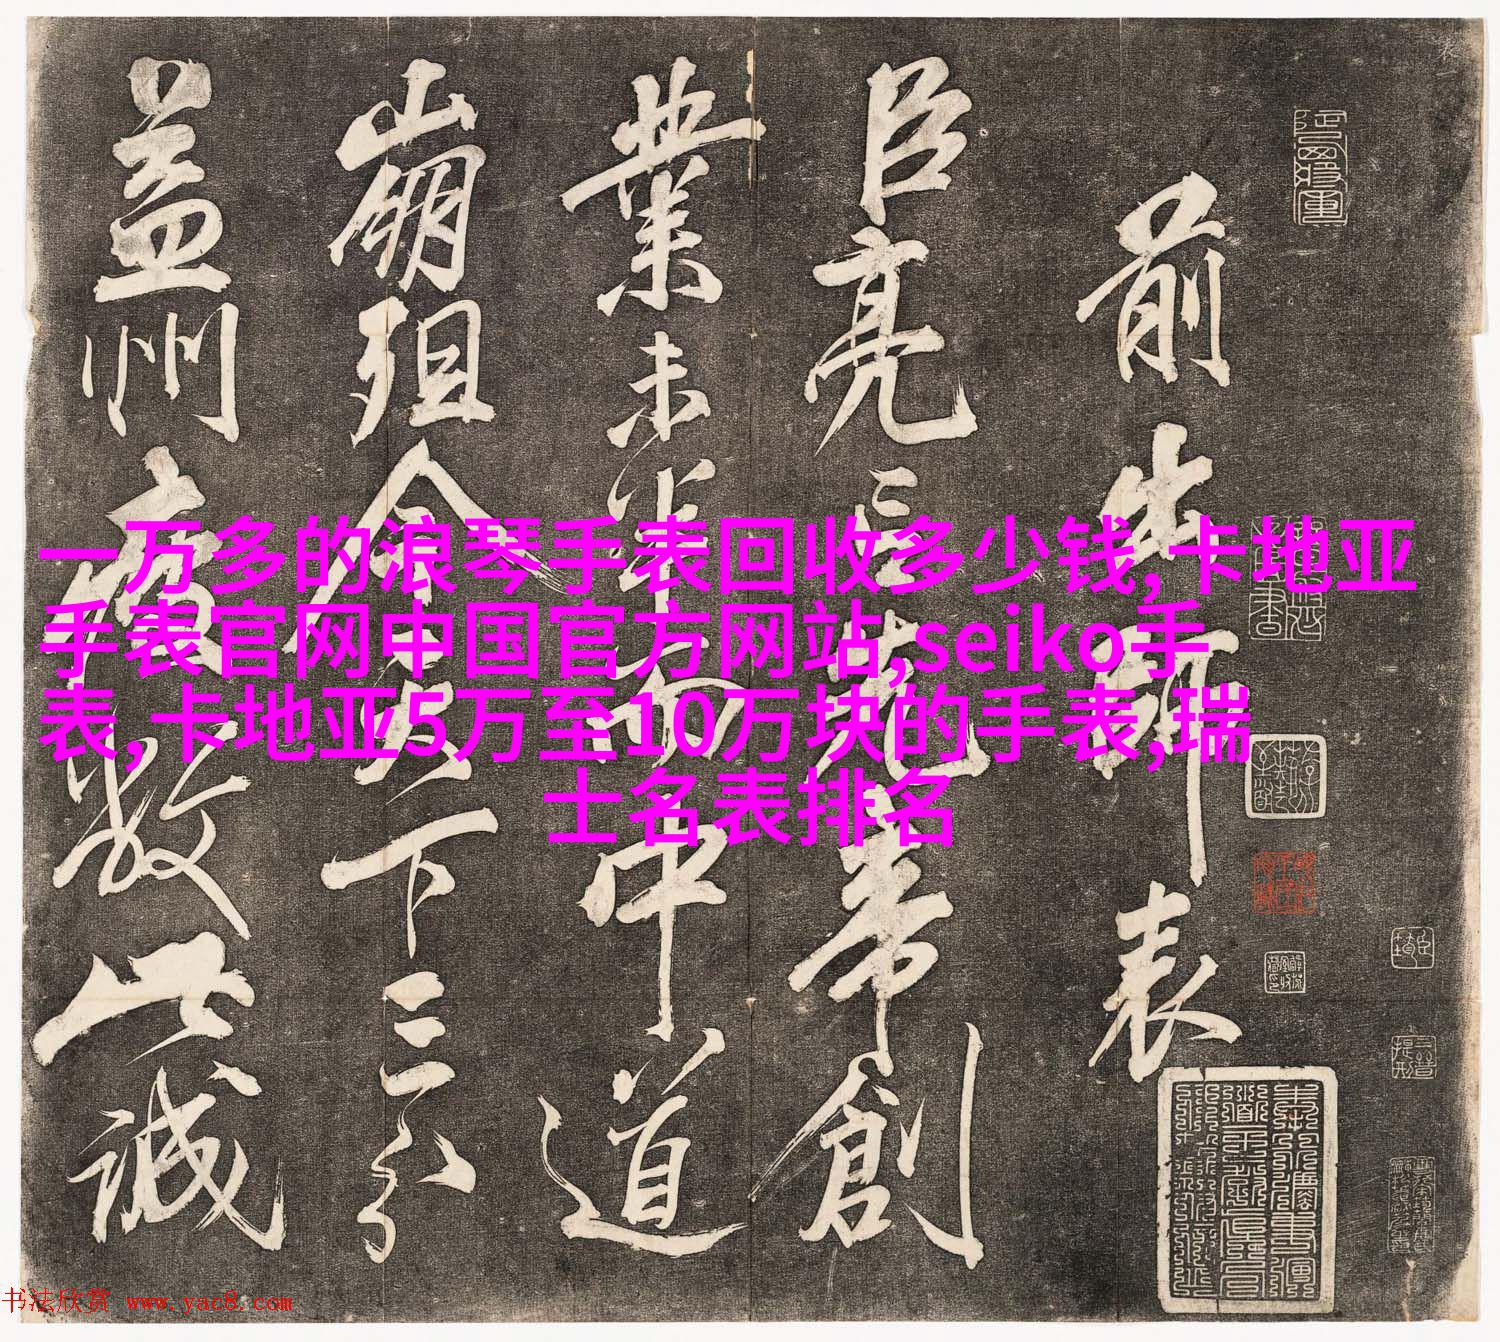 一万多的浪琴手表回收多少钱,卡地亚
手表官网中国官方网站,seiko手
表,卡地亚5万至10万块的手表,瑞
士名表排名
前出师表
臣亮言先帝創
業未半而中道
崩殂今天下三分
益州疲敝此誠
书法欣赏 www.yac8.com